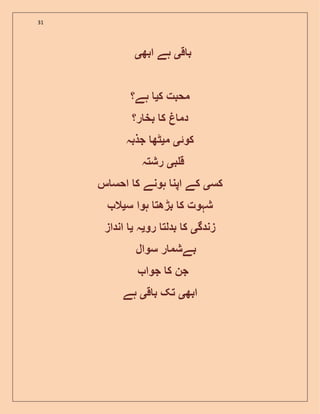 31
باقی ہے ابھی
محبت کیا ہے؟
دماغ کا بخار؟
کوئی میٹھا جذبہ
قلبی رشتہ
کسی کے اپنا ہونے کا احساس
شہوت کا بڑھتا ہوا سیلاب
زندگی کا بدلتا رویہ یا انداز
بےشمار سوال
جن کا جواب
ابھی تک باقی ہے